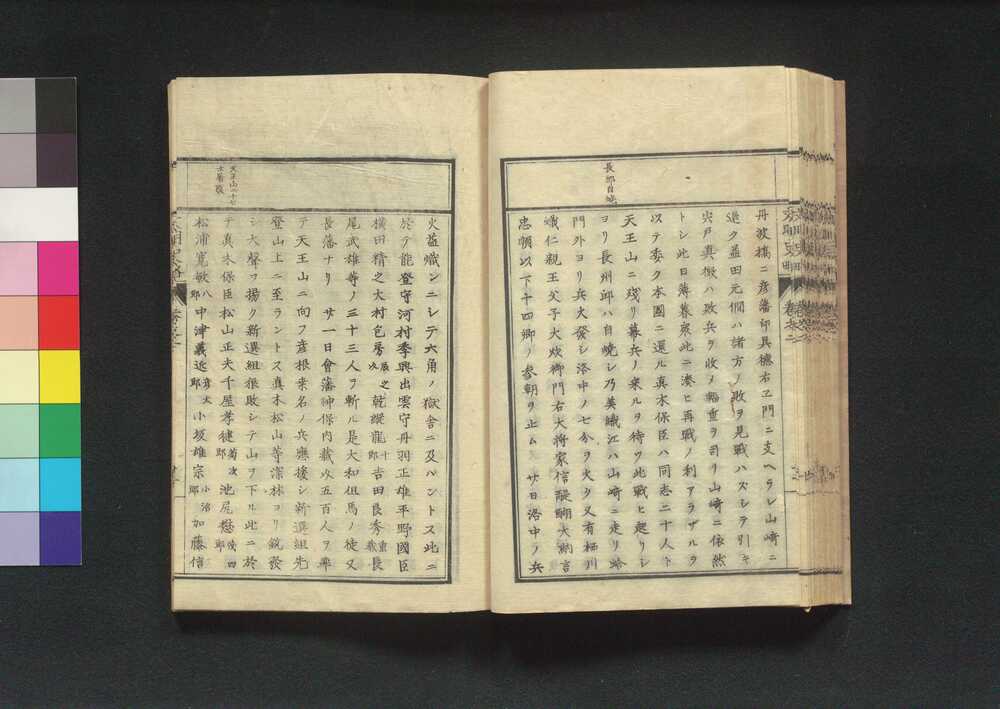 長邸自燒
丹波橋ニ彦藩印具德右ヱ門ニ支ヘラレ山崎ニ
退ク益田元僩ハ諸方ノ敗ヲ見戰ハズシテ引キ
宍戸真澂ハ敗兵ヲ收メ輜重ヲ司リ山崎ニ依然
トシ此日薄暮衆此ニ湊ヒ再戰ノ利アラザルヲ
以テ委ク本國ニ還ル真木保臣ハ同志二十人ト
天王山ニ殘リ幕兵ノ來ルヲ待ツ此戰ヒ起リシ
ヨリ長州邸ハ自燒シ乃美織江ハ山崎ニ走リ蛤
門外ヨリ兵火發シ洛中ノ七分ヲ火ク又有栖川
幟仁親王父子大炊御門右大將家信醍醐大納言
忠朝以下十四卿ノ參朝ヲ止ム 廿日洛中ノ兵
天王山ニ十七士屠腹
火益熾ンニシテ六角ノ獄舎ニ及バントス此ニ
於テ能登守河村季興出雲守丹羽正雄平野國臣
横田精之大村包房 辰之
乾縱龍 十郎 吉田良秀 重藏 長
尾武雄等ノ三十三人ヲ斬ル是大和但馬ノ徒又
長藩ナリ 廿一日會藩神保内藏以五百人ヲ率
テ天王山ニ向フ彦根桑名ノ兵應援シ新選組先
登山上ニ至ラントス真木松山等深林ヨリ銃發
シ大聲ヲ揚ク新選組狼敗シテ山ヲ下ル此ニ於
テ真木保臣松山正夫千屋孝健 菊次郎 池尻懋 茂四郎
松浦寬敏 八郎 中津義近 彦太郎 小坂雄宗 小治郎 加藤信